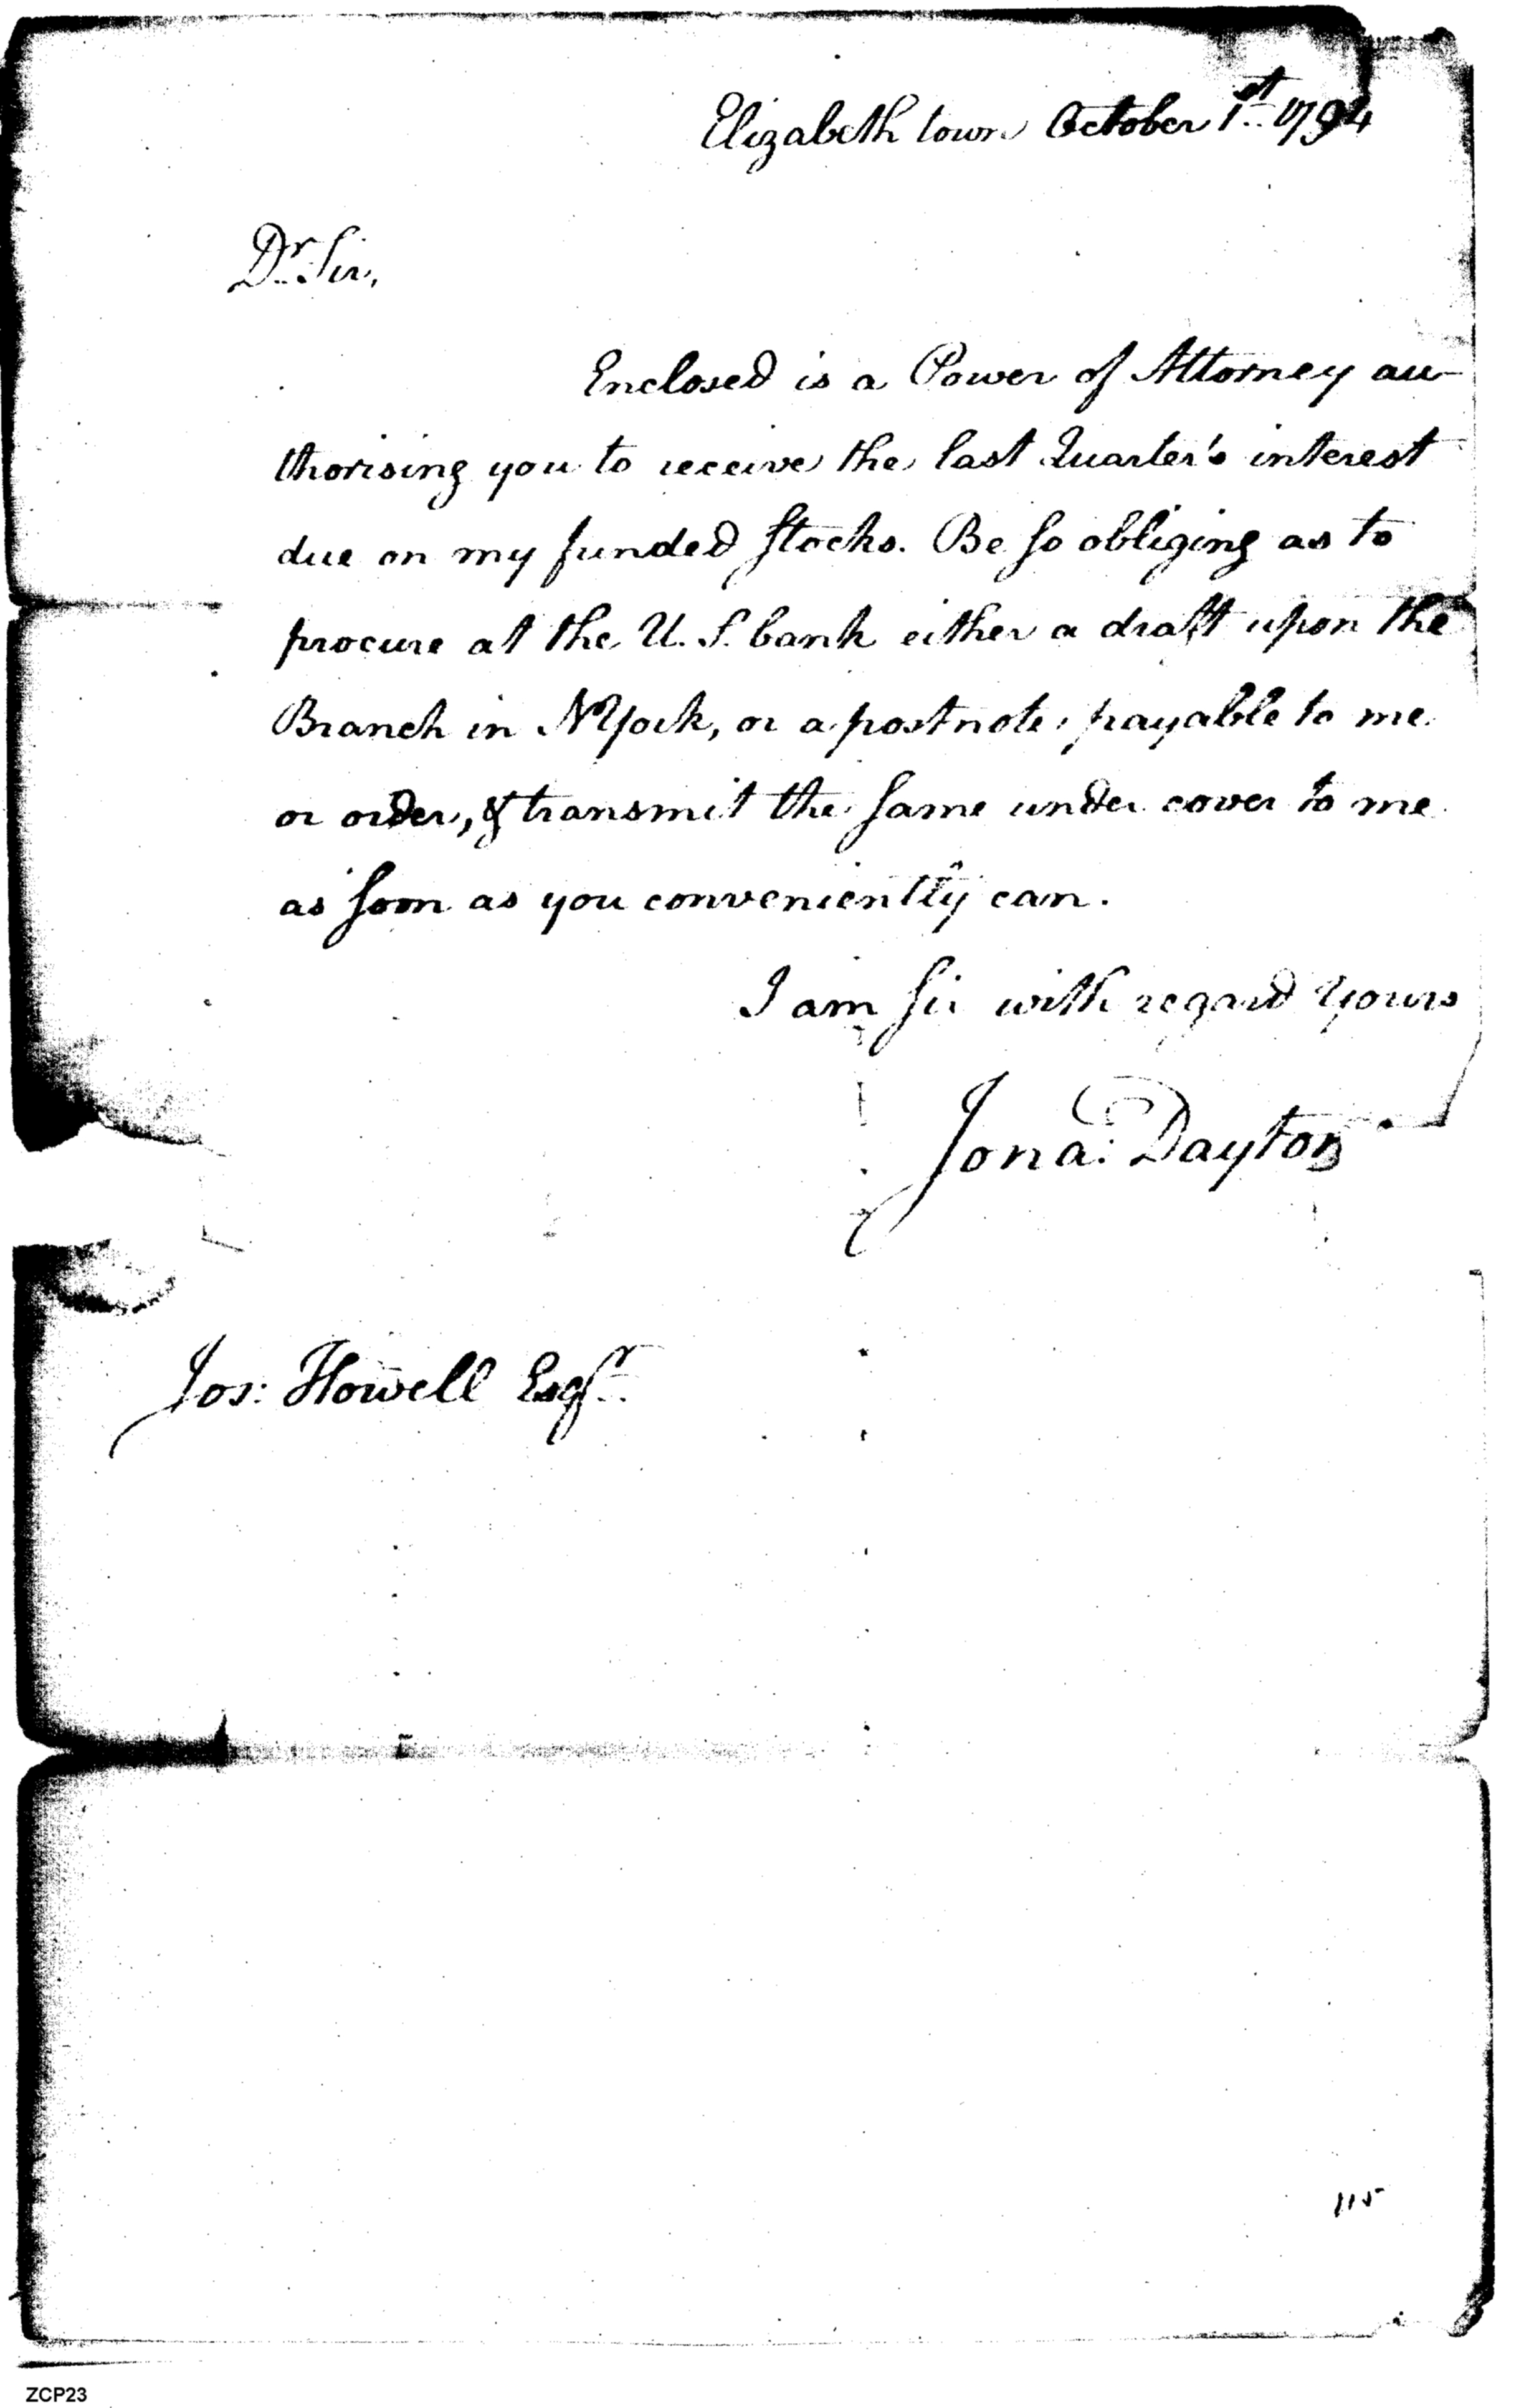 Elizabeth town October 1st 1794
Dr Sir,
Enclosed is a Power of Attorney au-
thorising you to receive the last Quarter's interest
due on my funded Stocks. Be so obliging as to
procure at the U. S. bank either a draft upon the
Branch in NYork, or a postnote, payable to me
or order, & transmit the same under cover to me
as soon as you conveniently can.
I am Sir with regard Yours
Jona: Dayton
Jos: Howell Esqr
115
ZCP23